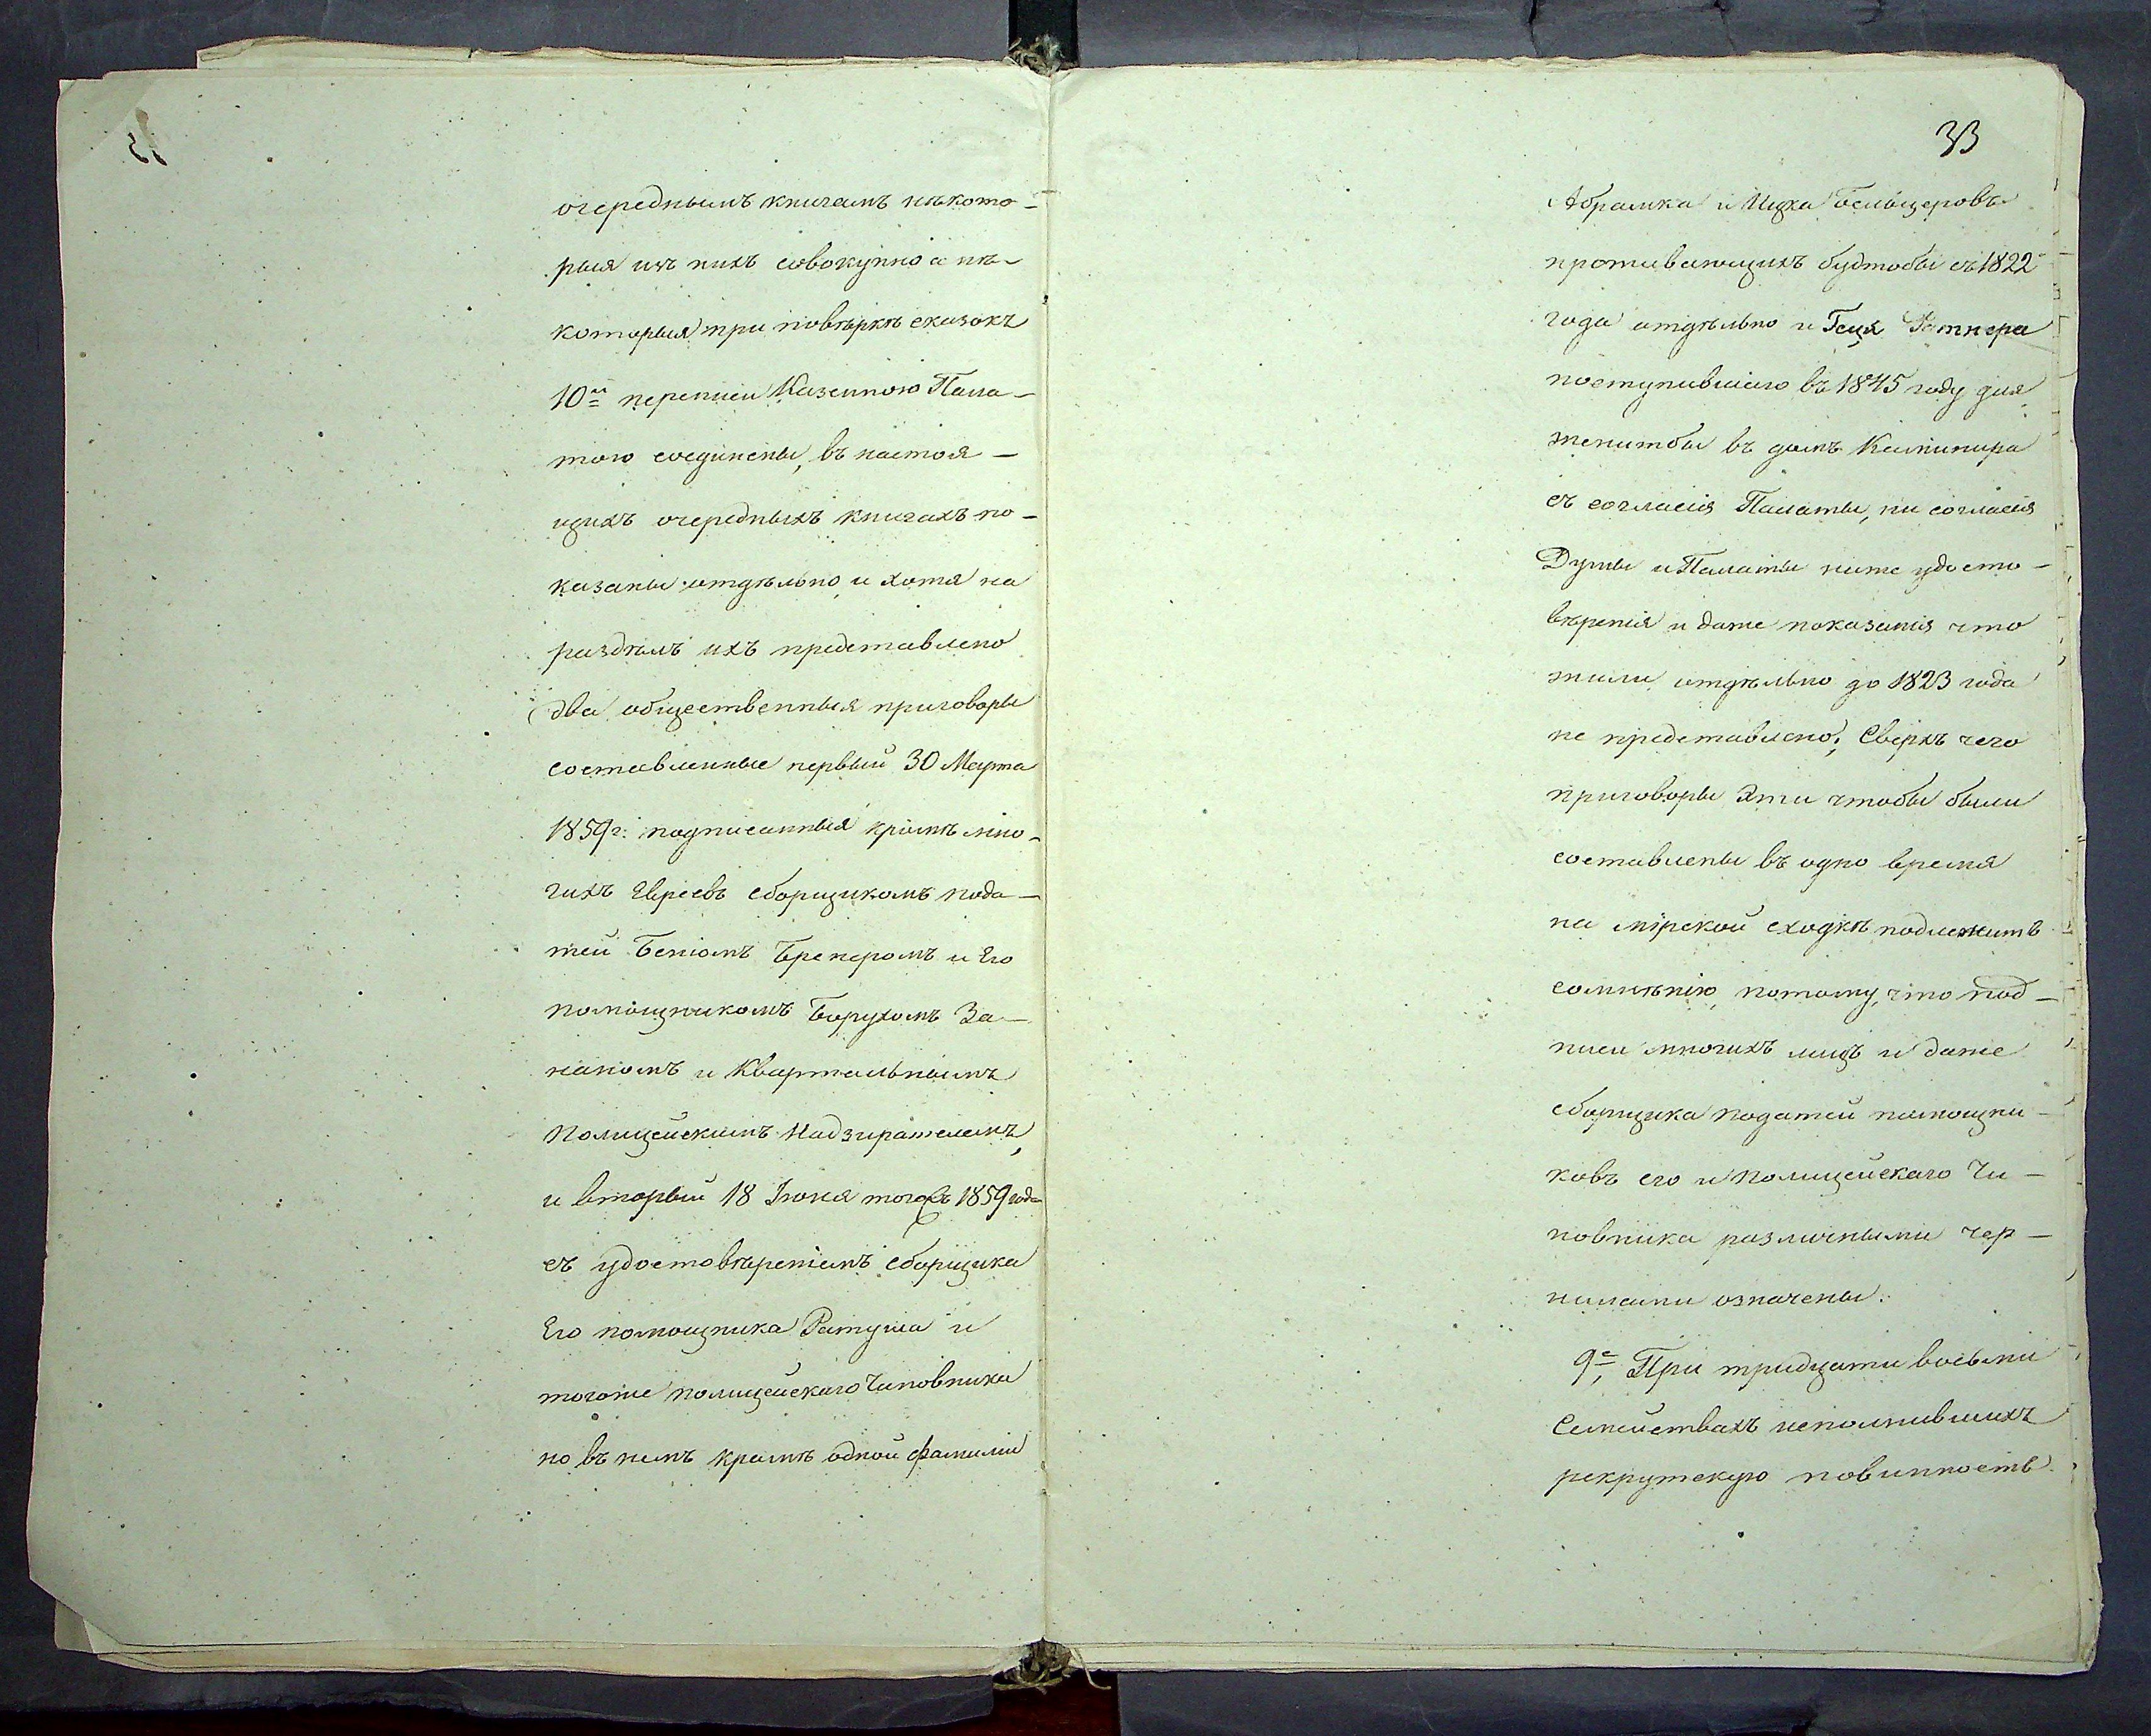 очереднымъ книгамъ нѣкото-
рыя изъ нихъ совокупно а нѣ-
которыя при повѣркѣ сказокъ
10й переписи Казенною Пала-
тою соединены, въ настоя-
щихъ очередныхъ книгахъ по-
казаны отдѣльно, и хотя на
раздѣлъ ихъ представлено
два общественныя приговоры
составленные первый 30 Марта
1859 г: подписанный кромѣ мно-
гихъ Евреевъ сборщикомъ пода-
тей Беніомъ Бренеромъ и Его
помощникомъ Борухомъ За-
и Квартальнымъ
Полицейскимъ Надзирателемъ,
и вторый 18 Іюня тогожъ 1859 года
съ удостовѣреніемъ сборщика
Его помощника Ратуша и
тогоже полицейскаго Чиновника
но въ немъ кромѣ одной фамиліи
33
Абрамка и Ицка Бельцеровъ
проживающихъ будтобы съ 1822
года отдѣльно и Геця Ратнера
поступившаго въ 1845 году для
женитбы въ домъ
съ согласія Палаты, ни согласія
Думы и Палаты ниже удосто-
вѣренія и даже показанія что
жили отдѣльно до 1823 года
не представлено; Сверхъ чего
приговоры Эти чтобы были
составлены въ одно время
на мірской сходкѣ подлежитъ
сомнѣнію, потому, что под-
писи многихъ лицъ и даже
сборщика податей помощни-
ковъ его и Полицейскаго Чи-
новника различными чер-
нилами означены.
9е, При тридцати восьми
Семействахъ неполнившихъ
рекрутскую повинность